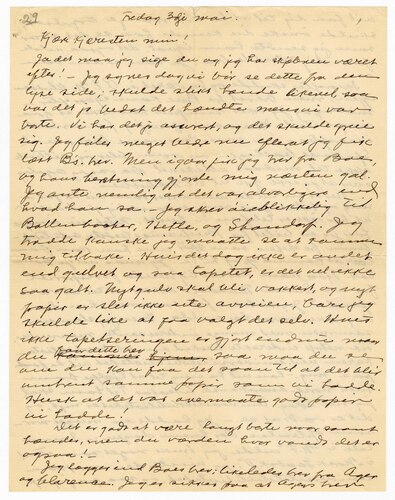 29
Fredag 3die mai.
Kjæk Kjæresten min!
Ja det maa jeg sige du og jeg har skjæbnen været
efter! – Jeg synes dog vi bör se dette fra den
lyse side; skulde slikt hænde likevel saa
var det jo bedst det hændte mens vi var
borte. Vi har det jo assurert, og det skulde greie
sig. Jeg föler meget bedre nu efterat jeg fik
læst B's. brev. Men igaar fik jeg brev fra Boe,
og hans beretning gjorde mig næsten gal.
Jeg ante nemlig at det var alvorligere end
hvad han sa. – Jeg skrev öieblikkelig til
og Jeg
trodde kanske jeg maatte se at komme
mig tilbake. Hvis det dog ikke er andet
end gulvet og saa tapetet, er det vel ikke
saa galt. Nyt gulv skal bli vakkert, og nyt
papir er slet ikke ute avveien, bare jeg
skulde like at faa valgt det selv. Hvis
ikke tapetseringen er gjort endnu naar
du faar dette brev saa maa du se
om du kan faa det saan til at det blir
omtrent samme papir som vi hadde.
Husk at det var overmaate godt papir
vi hadde!
Det er godt at være langt borte naar saant
hænder, men du verden hvor vondt det er
ogsaa! –
Jeg lægger ind Boes brev; likeledes brev fra Ager
og Clarence. Jeg er sikker paa at Agers brev